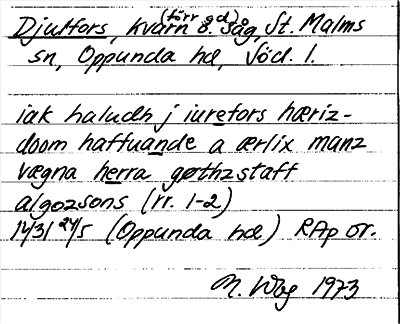 Djulfors, kvarn (förr gd) o. såg, St. Malms
sn, Oppunda hd, Söd. l.
iak haludh j iurefors hæriz-
doom haffuande a ærlix manz
vægna herra gøthzstaff
algozsons (rr. 1-2)
1431 24/5 (Oppunda hd) RAp or.
M. Wbg 1973